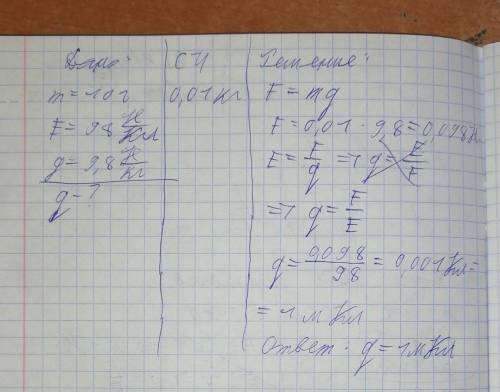 Дано:
m = 10 г
E = 98 Н/Кл
g = 9,8 Н/кг
q - ?
СИ
0,01 кг
Решение:
F = mg
F = 0,01 · 9,8 = 0,098
E = F/q => q = E/F
=> q = F/E
q = 0,098/98 = 0,001 Кл =
= 1 м Кл
Ответ · q = 1 м Кл